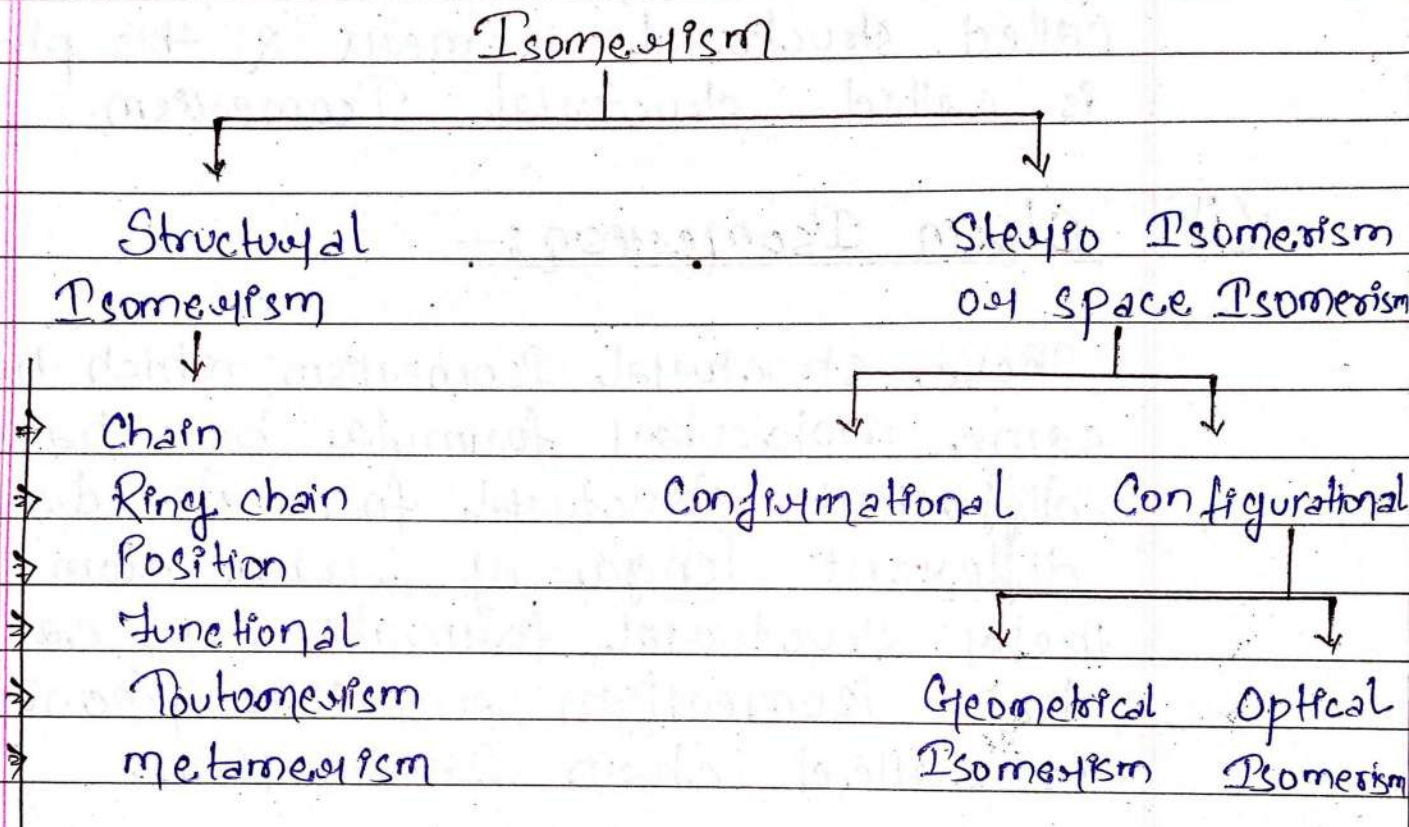 Isomerism
Structural
Isomerism
Sterio Isomerism
or space Isomerism
Chain
Ring chain
Position
Functional
Toutomerism
metamerism
Confirmational
Configurational
Geometrical
Isomerism
Optical
Isomerism